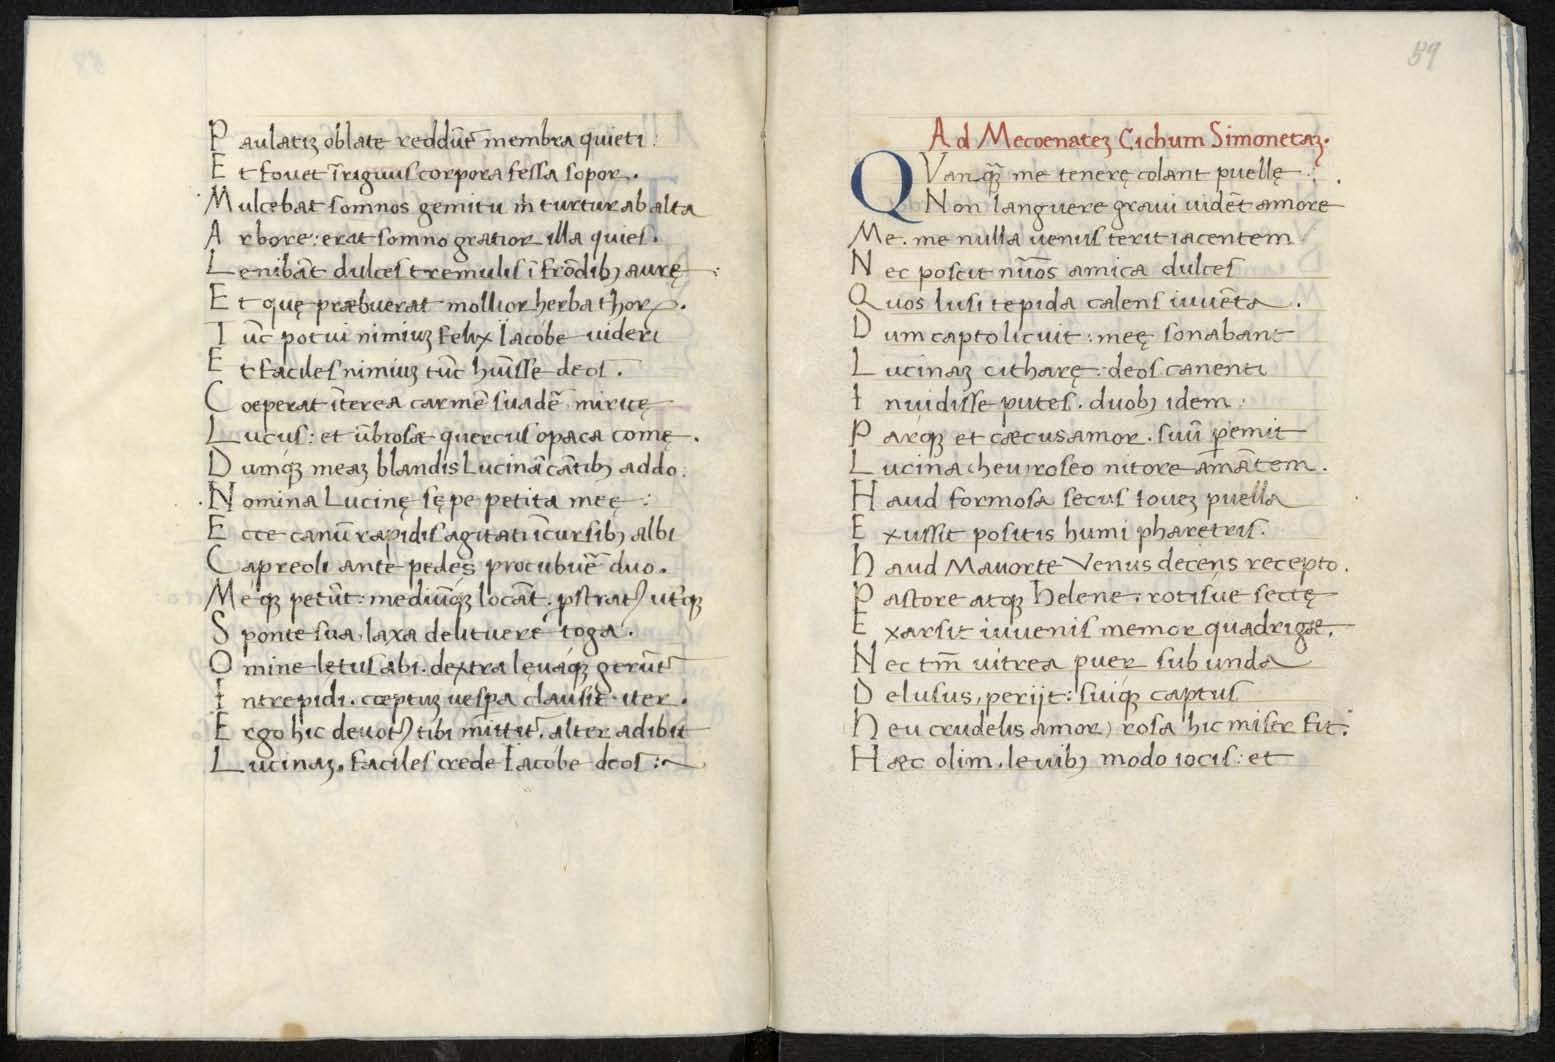 Paulatiʒ oblate reddūt̄ membra quieti :
Et fouet īriguus corpora fessa sopor .
Mulcebat somnos gemitu m̄ turtur ab alta
Arbore : erat somno gratior illa quies .
Lenibāt dulces tremulis ī frōdibꝫ aurę :
Et quę præbuerat mollior herba thorꝝ .
Tūc potui nimiuʒ felix Iacobe uideri
Et faciles nimiuʒ tūc hūisse deos .
Coeperat īterea carmē suadē miricę
Lucus : et ūbrosæ quercus opaca comę .
Dumqꝫ meaʒ blandis Lucinā cātibꝫ addo .
Nomina Lucinę sępe petita meę :
Ecce canū rapidis agitati īcursibꝫ albi
Capreoli ante pedes procubuēr̄ duo .
Meqꝫ petūt : mediūqꝫ locāt . ꝓstratꝰ ut'qꝫ
Sponte sua . laxa delituere toga .
Omine lętus abi . dextra lęuaqꝫ gerūt̄
Intrepidi . cœptuʒ uespa clausit iter .
Ergo hic deuotꝰ tibi mittit̄ . alter adibit
Lucinaʒ . faciles crede Iacobe deos :~
59
Ad Mecoenateʒ Cichum Simonetaʒ .
QVanqꝫ̄ me tenerę colant puellę :
Non languere graui uidēt amore
Me . me nulla uenus terit iacentem
Nec poscit nūos amica dulces
Quos lusi tepida calens iuuēta .
Dum capto licuit : meę sonabant
Lucinaʒ citharę : deos canenti
Inuidisse putes . duobꝫ idem
Parqꝫ et cæcus amor . suū ꝑemit
Lucina (heu) roseo nitore amātem .
Haud formosa secus Ioueʒ puella
Exussit positis humi pharetris .
Haud Mauorte Venus decens recepto .
Pastore atqꝫ Helene . rotisue sectę
Exarsit iuuenis memor quadrigæ .
Nec tm̄ uitrea puer sub unda
Delusus , perijt : suiqꝫ captus
Heu crudelis amor) rosa hic miser fit .
Hæc olim . leuibꝫ modo iocis : et